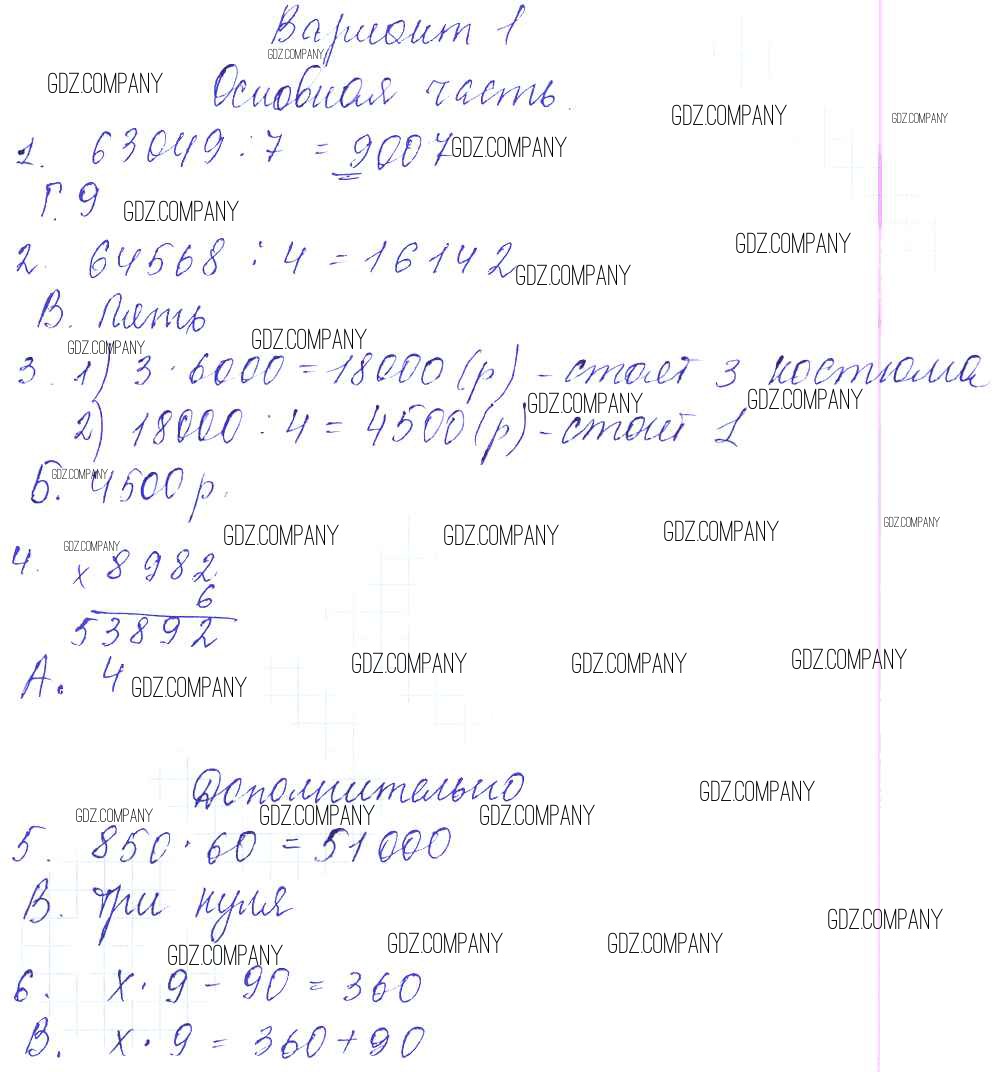 Вариант 1
GDZ.COMPANY
GDZ.COMPANY Основная часть.
GDZ.COMPANY GDZ.COMPANY
1. 63049 : 7 = 9007 GDZ.COMPANY
Г. 9 GDZ.COMPANY
GDZ.COMPANY
2. 64568 : 4 = 16142 GDZ.COMPANY
В. Пять
GDZ.COMPANY GDZ.COMPANY
3. 1) 3 · 6000 = 18000 (р) - стоят 3 костюма
GDZ.COMPANY GDZ.COMPANY
2) 18000 : 4 = 4500 (р) - стоит 1
GDZ.COMPANY
Б. 4500 р.
GDZ.COMPANY GDZ.COMPANY GDZ.COMPANY GDZ.COMPANY
GDZ.COMPANY
4. х 8982
6
53892
GDZ.COMPANY GDZ.COMPANY GDZ.COMPANY
А. 4 GDZ.COMPANY
Дополнительно GDZ.COMPANY
GDZ.COMPANY GDZ.COMPANY GDZ.COMPANY
5. 850 · 60 = 51000
В. три нуля
GDZ.COMPANY
GDZ.COMPANY GDZ.COMPANY GDZ.COMPANY
6. х · 9 - 90 = 360
В. х · 9 = 360 + 90